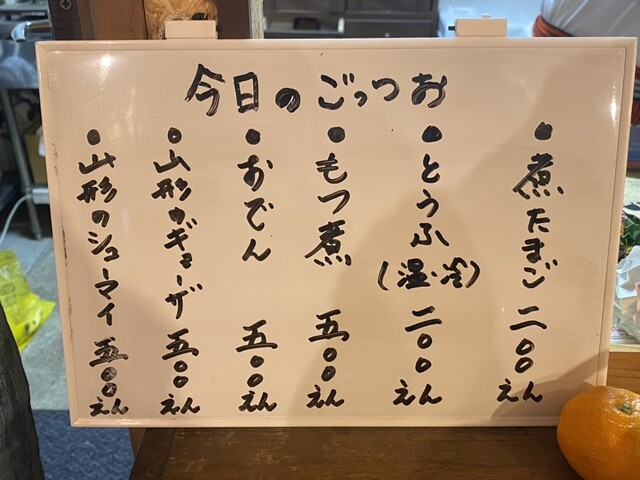 今日のごっつお
・煮たまご 二〇〇えん
・とうふ(温・冷) 二〇〇えん
・もつ煮 五〇〇えん
・おでん 五〇〇えん
・山形のギョーザ 五〇〇えん
・山形のシューマイ 五〇〇えん